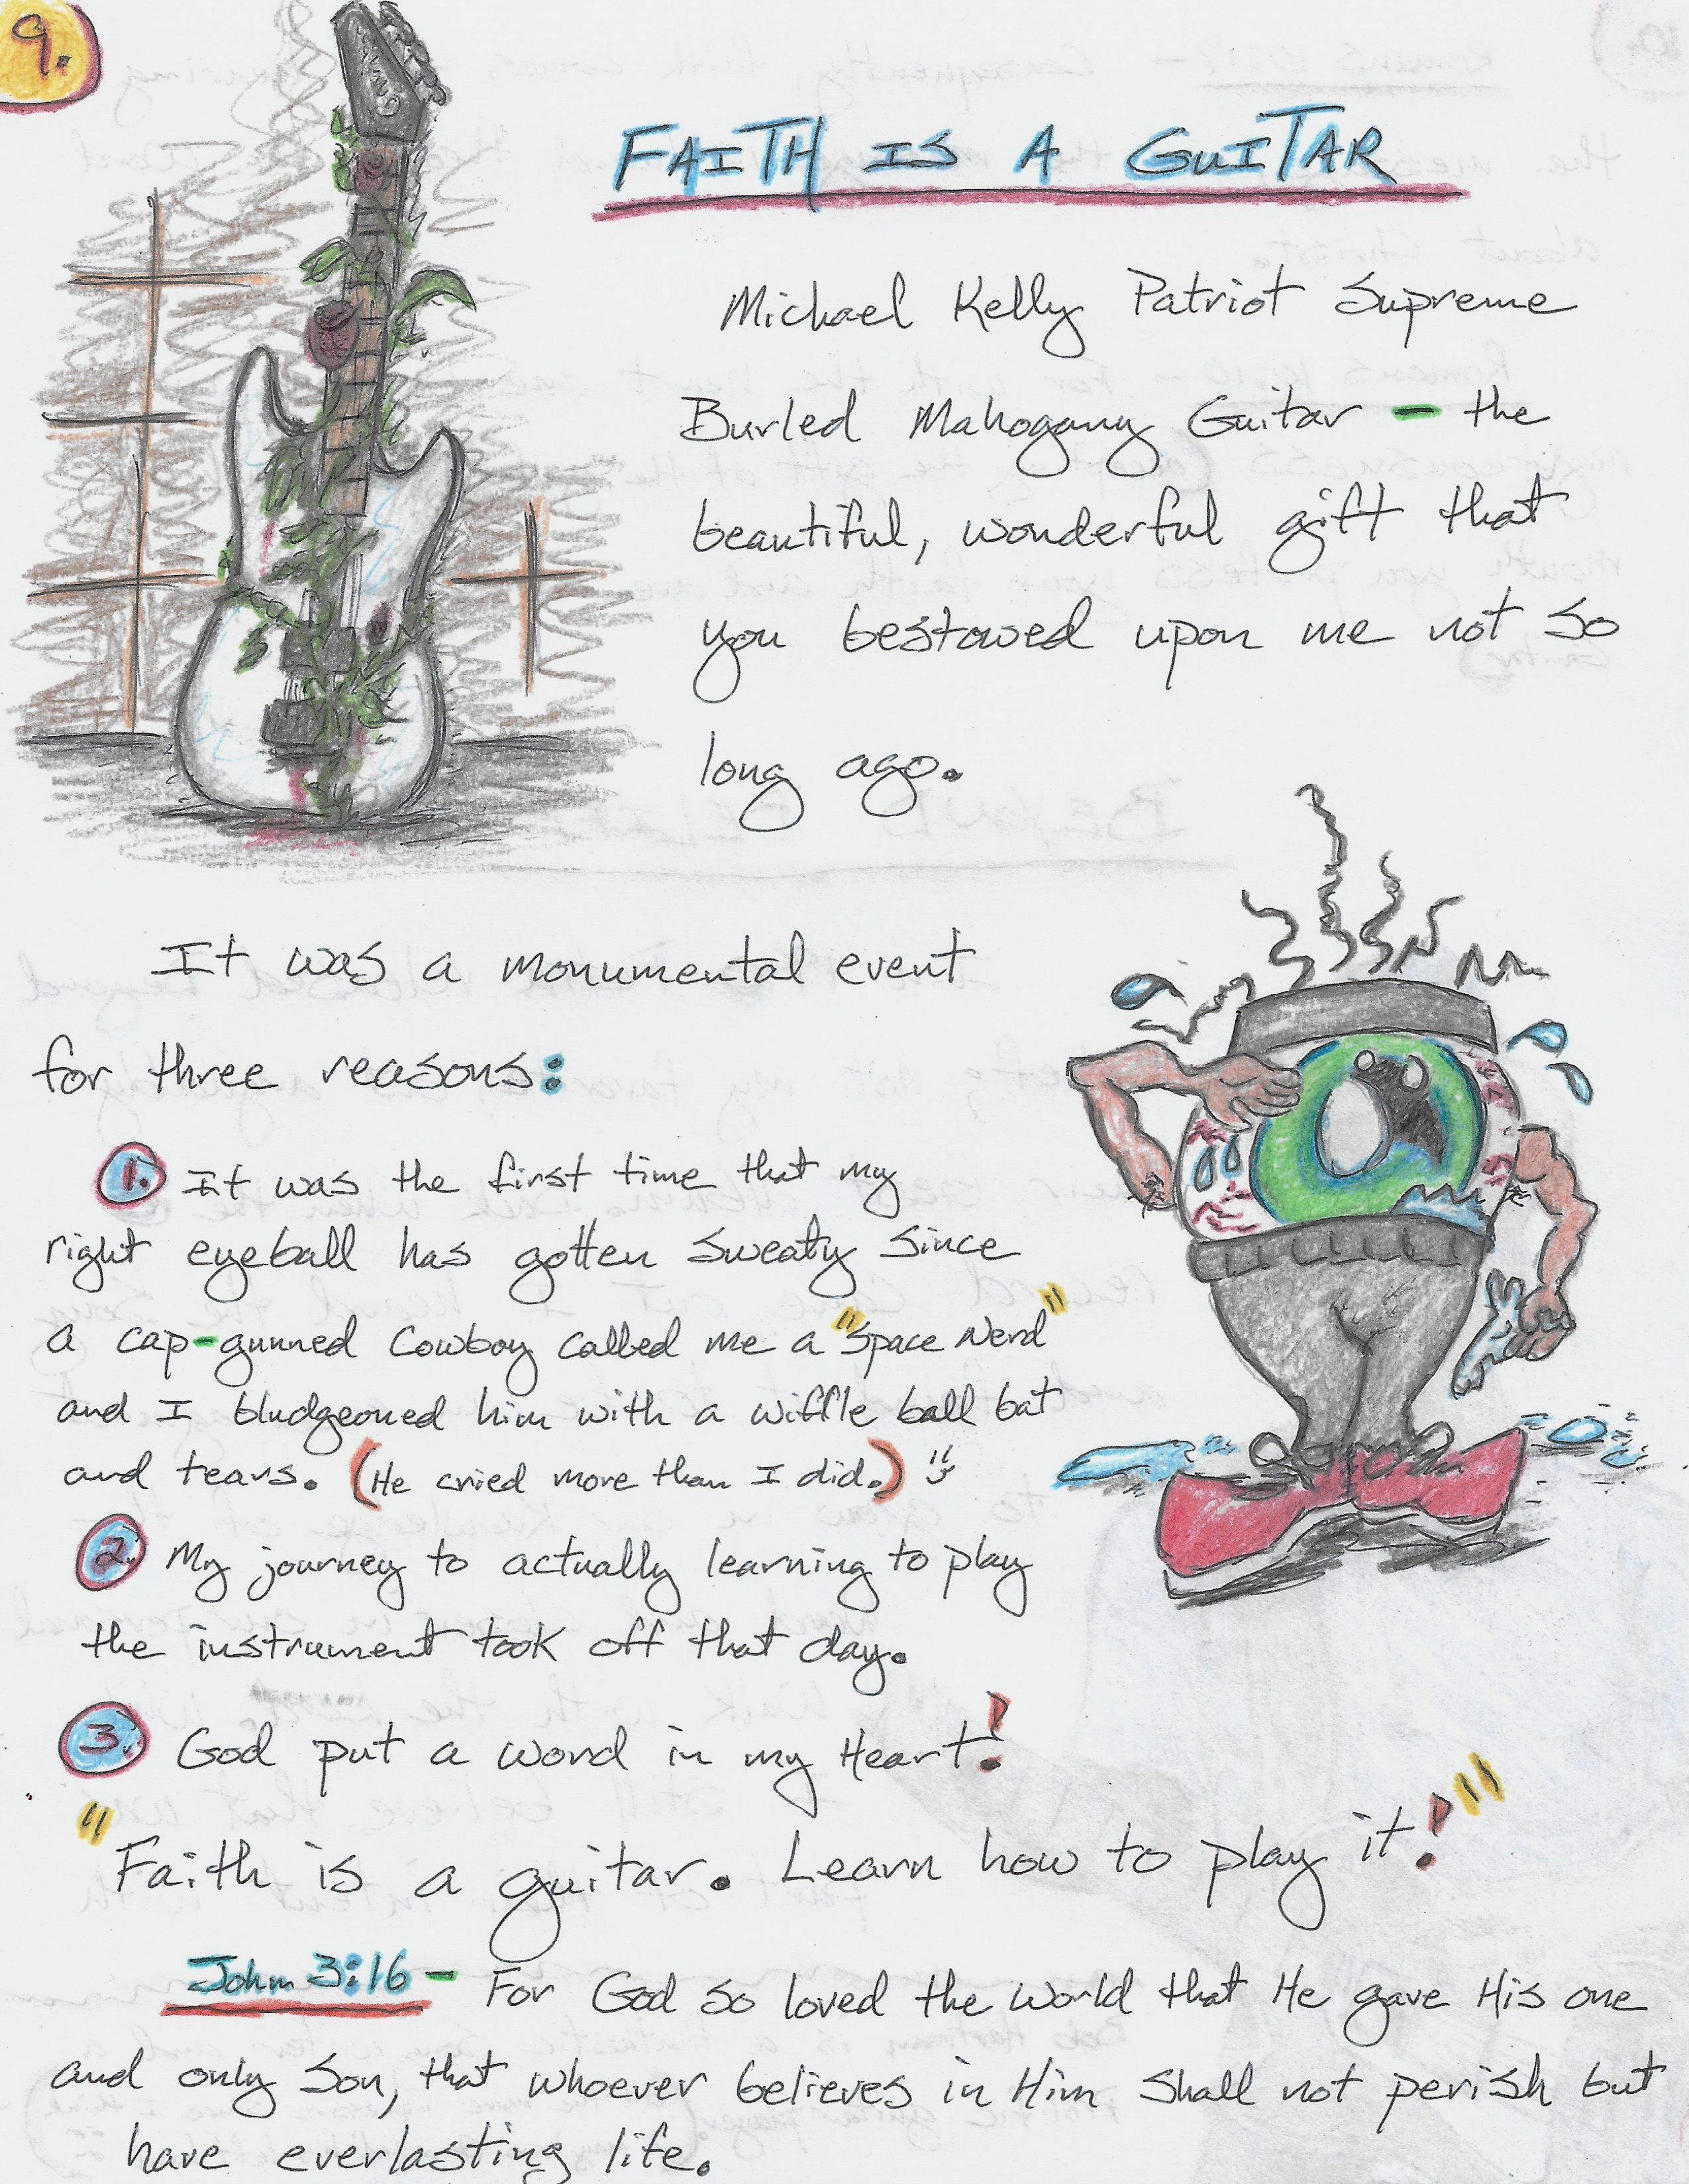 9.
FAITH IS A GUITAR
Michael Kelly Patriot Supreme
Burled Mahogany Guitar - the
beautiful, wonderful gift that
you bestowed upon me not so
long ago.
It was a monumental event
for three reasons:
1. It was the first time that my
right eyeball has gotten sweaty since
a cap-gunned Cowboy called me a "Space Nerd"
and I bludgeoned him with a wiffle ball bat
and tears. (He cried more than I did.)
2. My journey to actually learning to play
the instrument took off that day.
3. God put a word in my Heart!
"Faith is a guitar. Learn how to play it!"
John 3:16 - For God so loved the world that He gave His one
and only Son, that whoever believes in Him shall not perish but
have everlasting life.